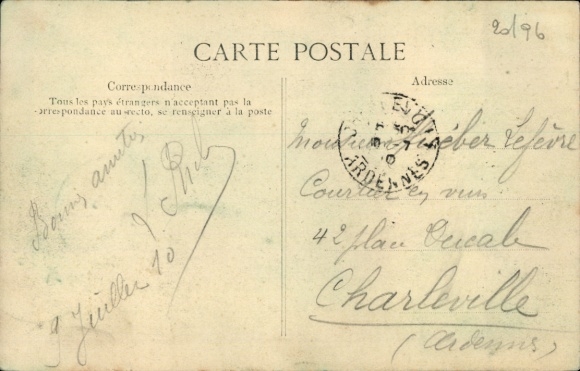 20/96
CARTE POSTALE
Correspondance
Tous les pays étrangers n'acceptant pas la
orrespondance au recto, se renseigner à la poste
Adresse
Bonnes amitiés
9 Juillet 10
ARDENNES
Monsieur Kléber Lefèvre
Courtier en vins
42 place Ducale
Charleville
(Ardennes)